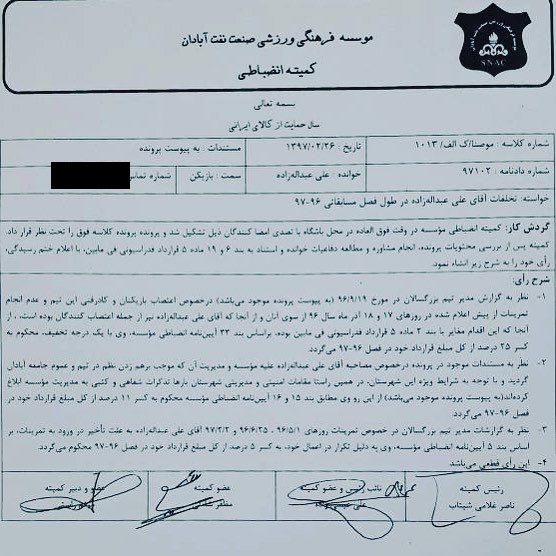 موسسه فرهنگی ورزشی صنعت نفت آبادان
کمیته انضباطی
SNAC
بسمه تعالی
سال حمایت از کالای ایرانی
شماره کلاسه : موصنا/ک الف/ ۱۰۱۳
تاریخ : ۱۳۹۷/۰۲/۲۶
مستندات : به پیوست پرونده
شماره دادنامه : ۹۷۱۰۲
خوانده : علی عبداله‌زاده
سمت : بازیکن
شماره تماس
خواسته: تخلفات آقای علی عبداله‌زاده در طول فصل مسابقاتی ۹۷-۹۶
گردش کار: کمیته انضباطی مؤسسه در وقت فوق العاده در محل باشگاه با تصدی امضا کنندگان ذیل تشکیل شد و پرونده پرونده کلاسه فوق را تحت نظر قرار داد.
کمیته پس از بررسی محتویات پرونده، انجام مشاوره و مطالعه دفاعیات خوانده و استناد به بند ۶ و ۱۹ ماده ۵ قرارداد فدراسیونی فی مابین، با اعلام ختم رسیدگی،
رأی خود را به شرح زیر انشاء نمود.
شرح رأی:
۱- نظر به گزارش مدیر تیم بزرگسالان در مورخ ۹۶/۹/۱۹ (به پیوست پرونده موجود می‌باشد) درخصوص اعتصاب بازیکنان و کادرفنی این تیم و عدم انجام
تمرینات از پیش اعلام شده در روزهای ۱۷ و ۱۸ آذر ماه سال ۹۶ از سوی آنان و از آنجا که آقای علی عبداله‌زاده نیز از جمله اعتصاب کنندگان بوده است ، از
آنجا که این اقدام مغایر با بند ۲ ماده ۵ قرارداد فدراسیونی فی مابین بوده، براساس بند ۳۳ آیین‌نامه انضباطی مؤسسه، وی با یک درجه تخفیف، محکوم به
کسر ۲۵ درصد از کل مبلغ قرارداد خود در فصل ۹۶-۹۷ می‌گردد.
۲- نظر به مستندات موجود در پرونده درخصوص مصاحبه آقای علی عبداله‌زاده علیه مؤسسه و مدیریت آن که موجب برهم زدن نظم در تیم و عموم جامعه آبادان
گردید و با توجه به شرایط ویژه این شهرستان، در همین راستا مقامات امنیتی و مدیریتی شهرستان بارها تذکرات شفاهی و کتبی به مدیریت مؤسسه ابلاغ
کرده‌اند(به پیوست پرونده موجود می‌باشد) از این رو وی مطابق بند ۱۵ و ۱۶ آیین‌نامه انضباطی مؤسسه محکوم به کسر ۱۱ درصد از کل مبلغ قرارداد خود در
فصل ۹۶-۹۷ می‌گردد.
۳- نظر به گزارشات مدیر تیم بزرگسالان در خصوص تمرینات روزهای ۹۶/۵/۱ - ۹۶/۶/۲۵ و ۹۷/۲/۲ آقای علی عبداله‌زاده به علت تأخیر در ورود به تمرینات، بر
اساس بند ۵ آیین‌نامه انضباطی مؤسسه، وی به دلیل تکرار در اعمال خود، به کسر ۵ درصد از کل مبلغ قرارداد خود در فصل ۹۶-۹۷ محکوم می‌گردد.
۴- این رأی قطعی می‌باشد
رئیس کمیته
ناصر غلامی شیتاب
نائب رئیس و عضو کمیته
علی
عضو کمیته
مظفر
عضو و دبیر کمیته